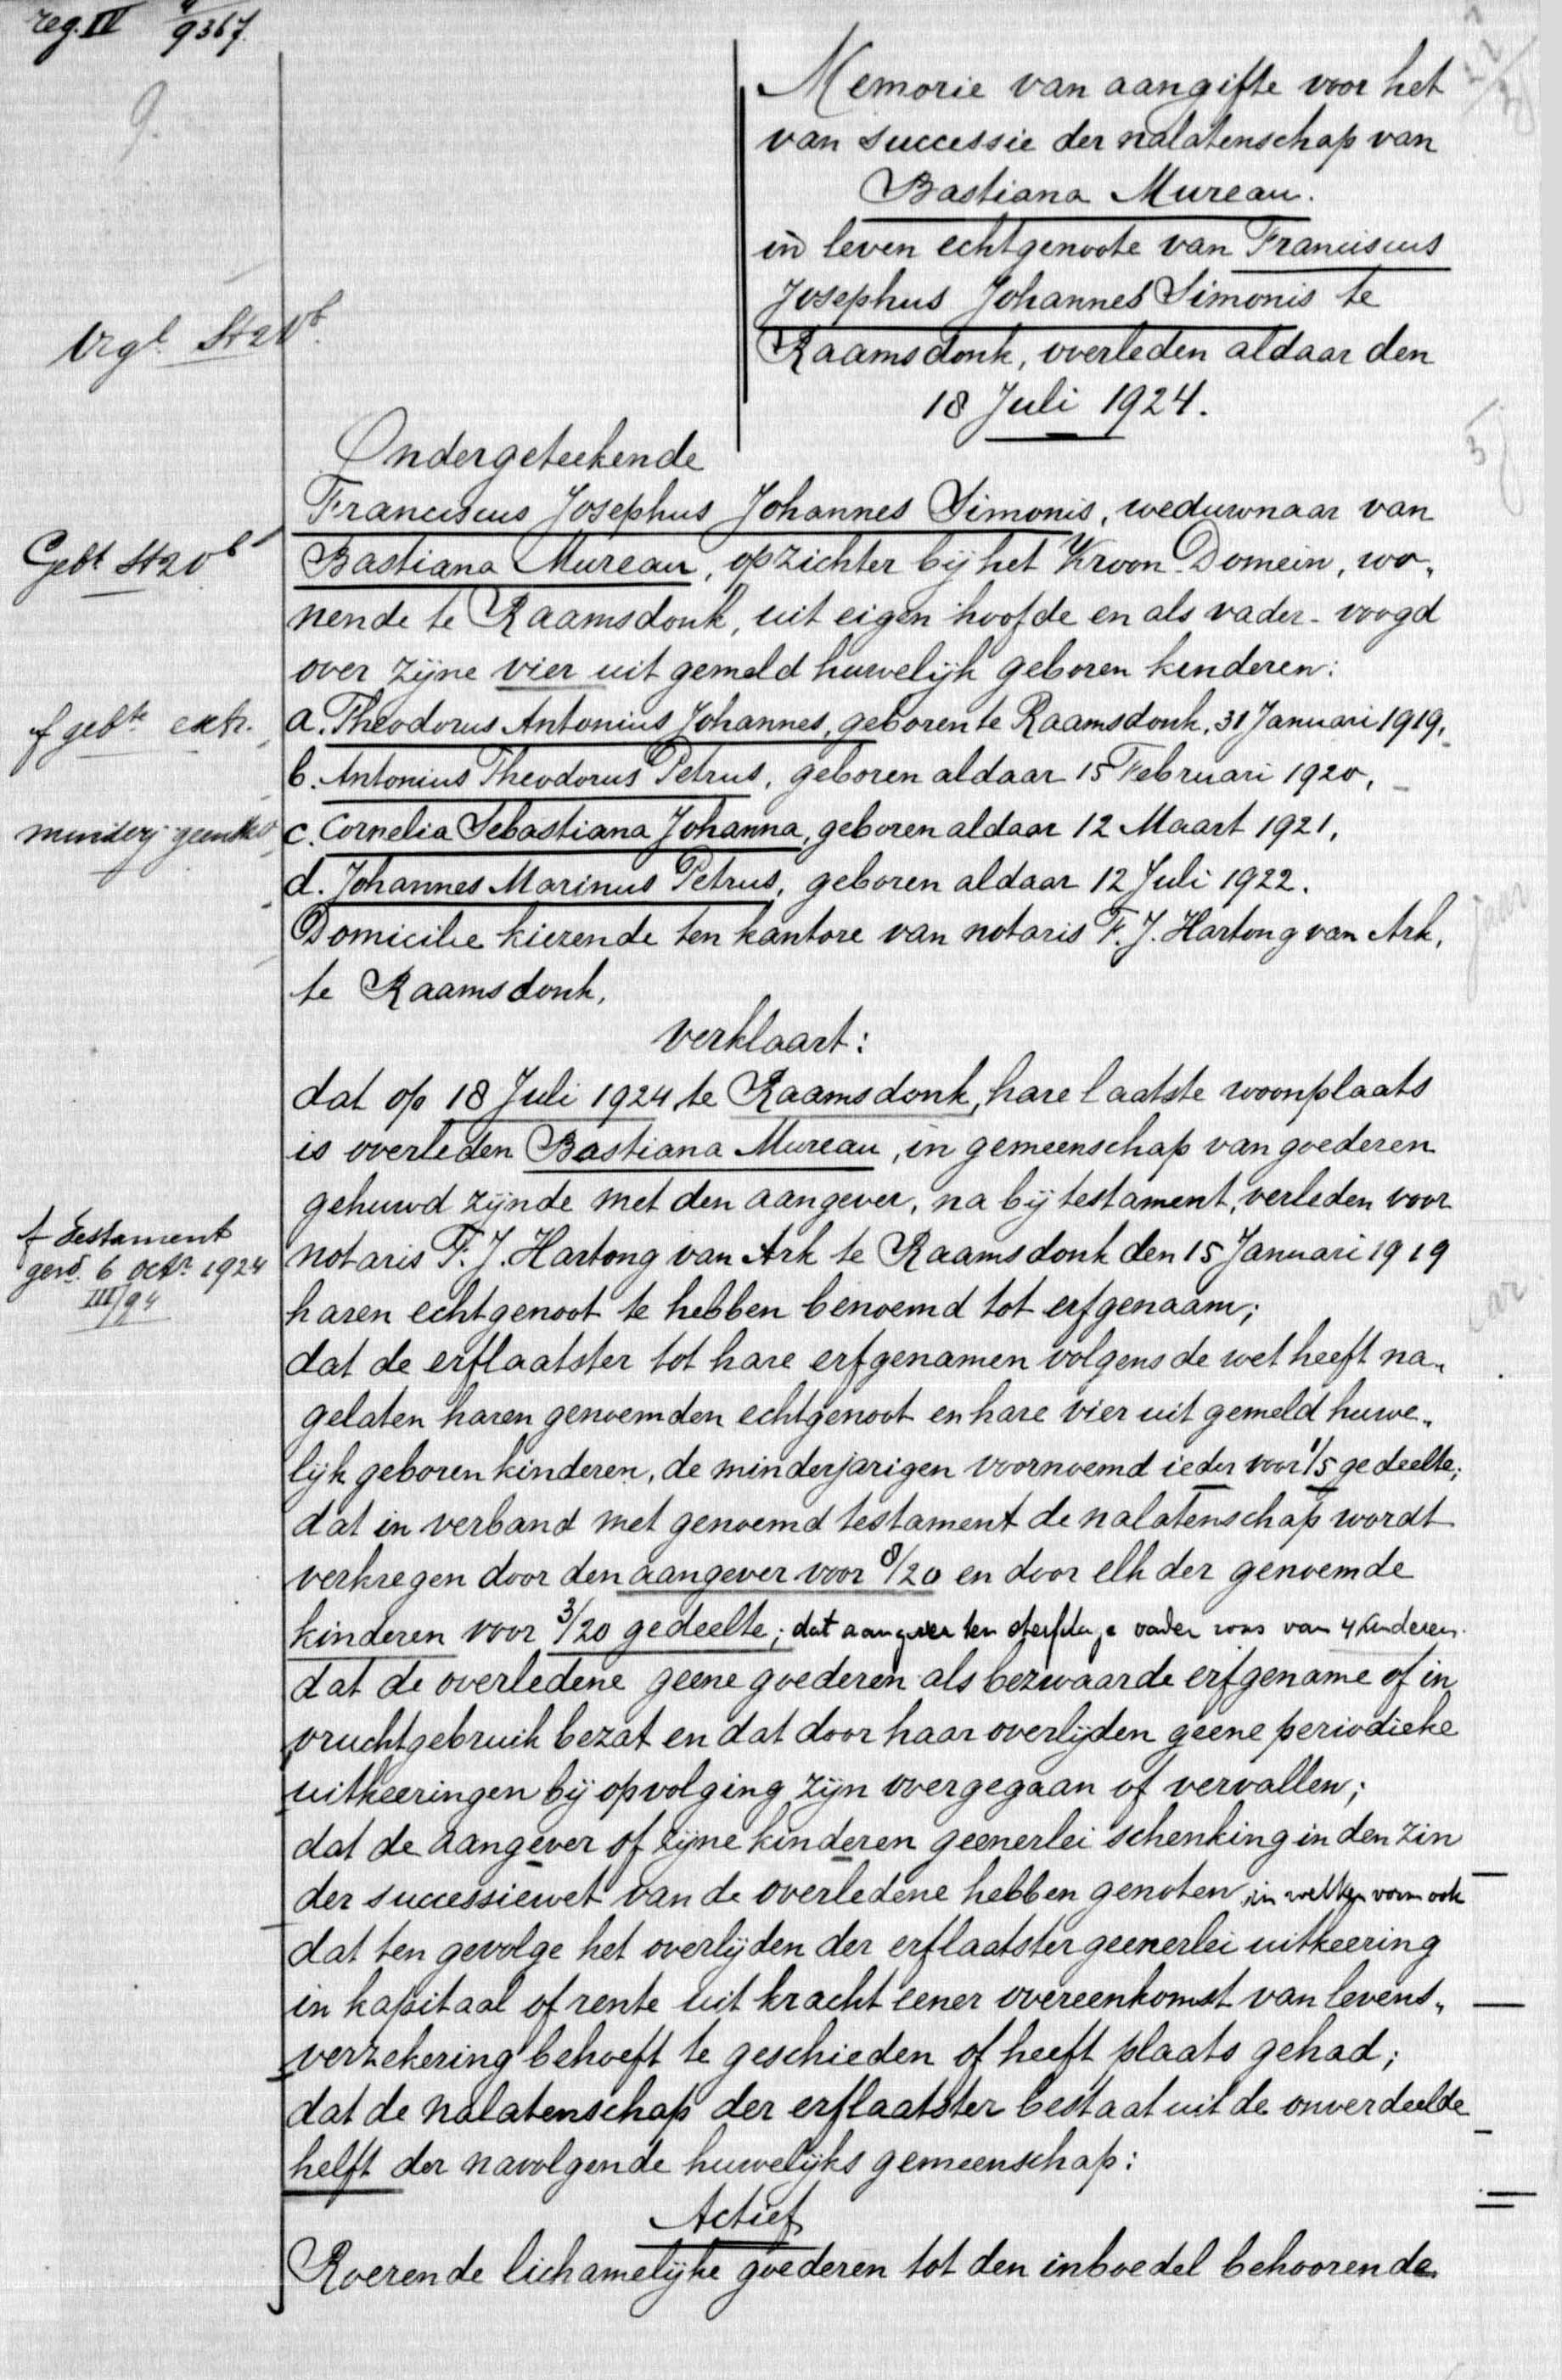 reg. IV 4/9367.
Memorie van aangifte voor het
van successie der nalatenschap van
Bastiana Mureau.
in leven echtgenoote van Franciscus
Josephus Johannes Simonis te
Raamsdonk, overleden aldaar den
18 Juli 1924.
Ondergeteekende
Franciscus Josephus Johannes Simonis, weduwnaar van
Bastiana Mureau, opzichter bij het Kroon-Domein, wo„
nende te Raamsdonk, uit eigen hoofde en als vader-voogd
over zijne vier uit gemeld huwelijk geboren kinderen:
a. Theodorus Antonius Johannes, geboren te Raamsdonk, 31 Januari 1919,
b. Antonius Theodorus Petrus, geboren aldaar 15 Februari 1920,
c. Cornelia Sebastiana Johanna, geboren aldaar 12 Maart 1921,
d. Johannes Marinus Petrus, geboren aldaar 12 Juli 1922.
Domicilie kiezende ten kantore van notaris F. J. Hartong van Ark,
te Raamsdonk,
verklaart:
dat op 18 Juli 1924 te Raamsdonk, hare laatste woonplaats
is overleden Bastiana Mureau, in gemeenschap van goederen
gehuwd zijnde met den aangever, na bij testament, verleden voor
f testament
ger'd. 6 octr 1924
III/94
notaris F. J. Hartong van Ark te Raamsdonk den 15 Januari 1919
haren echtgenoot te hebben benoemd tot erfgenaam;
dat de erflaatster tot hare erfgenamen volgens de wet heeft na„
gelaten haren genoemden echtgenoot en hare vier uit gemeld huwe„
lijk geboren kinderen, de minderjarigen voornoemd ieder voor 1/5 gedeelte;
dat in verband met genoemd testament de nalatenschap wordt
verkregen door den aangever voor 8/20 en door elk der genoemde
kinderen voor 3/20 gedeelte; dat aangever ten sterfdage vader was van 4 kinderen.
dat de overledene geene goederen als bezwaarde erfgename of in
vruchtgebruik bezat en dat door haar overlijden geene periodieke
uitkeeringen bij opvolging zijn overgegaan of vervallen;
dat de aangever of zijne kinderen geenerlei schenking in den zin
der successiewet van de overledene hebben genoten, in welken vorm ook
dat ten gevolge het overlijden der erflaatster geenerlei uitkeering
in kapitaal of rente uit kracht eener overeenkomst van levens„
verzekering behoeft te geschieden of heeft plaats gehad;
dat de nalatenschap der erflaatster bestaat uit de onverdeelde
helft der navolgende huwelijks gemeenschap:
Actief
Roerende lichamelijke goederen tot den inboedel behoorende